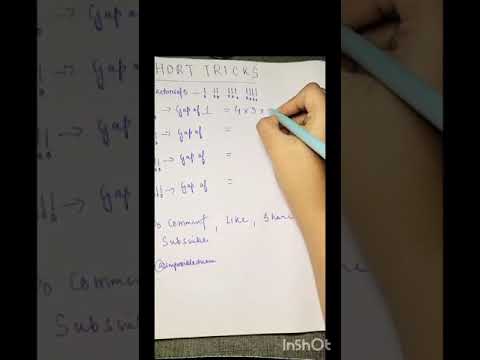 HORT TRICKS
actorials → ! !! !!! !!!!
→ Gap of 1 = 4 x 3 x
!! → Gap of =
!! → Gap of =
!!! → Gap of =
o Comment, Like, Share
Subscribe
o Comme
Subs
InShOt